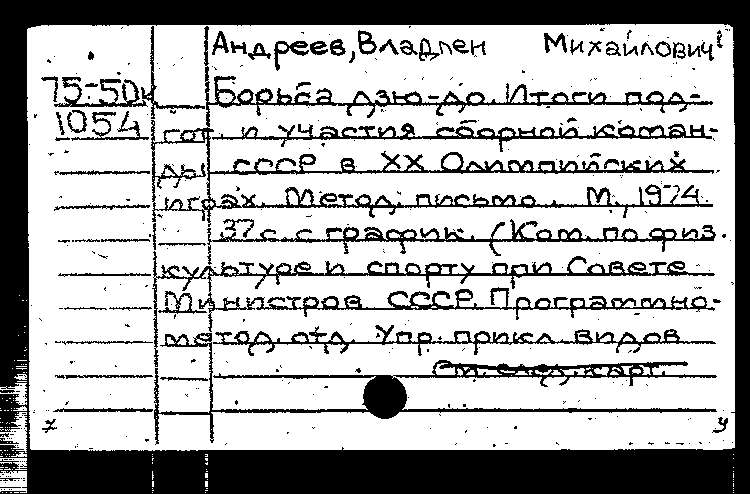 Андреев, Владлен Михайлович
75-50к Борьба дзю-до. Итоги под-
1054 гот. и участия сборной коман-
ды СССР в XX Олимпийских
играх. Метод. письмо. М., 1974.
37 с. с график. (Ком. по физ.
культуре и спорту при Совете
Министров СССР. Программно-
метод. отд. Упр. прикл. видов
См. след. карт.